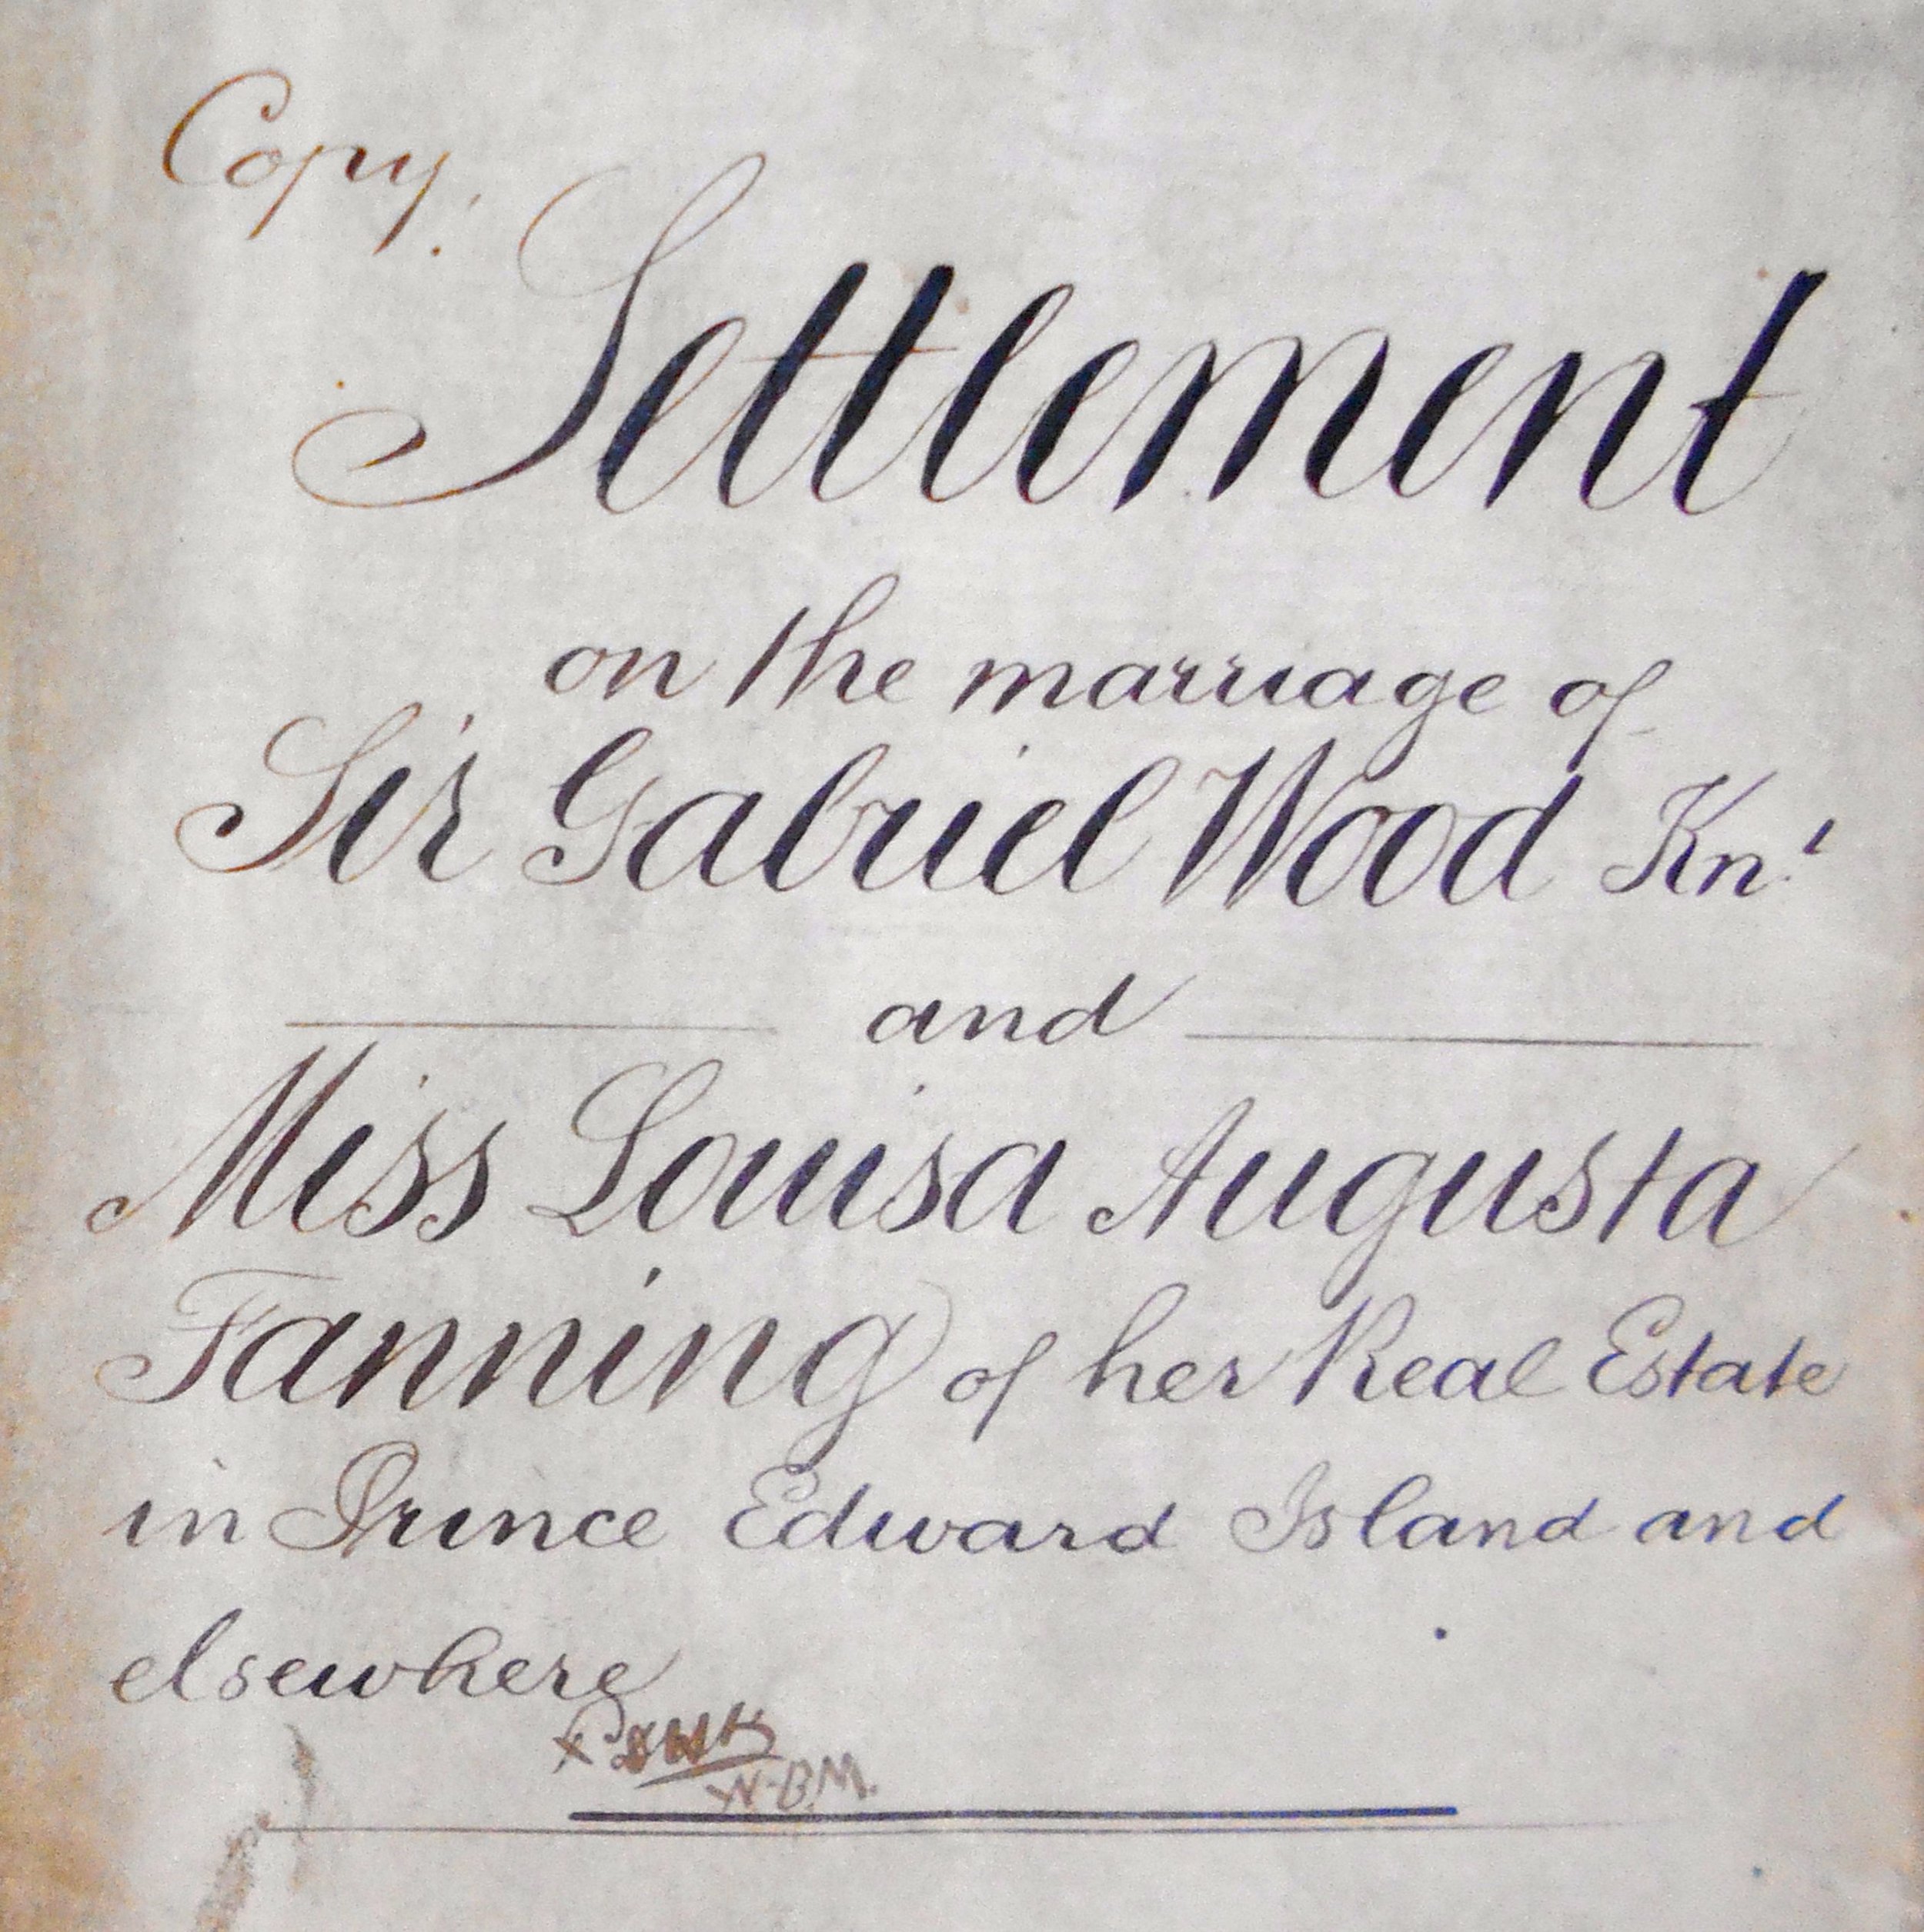 Copy.
Settlement
on the marriage of
Sir Gabriel Wood Knt
and
Miss Louisa Augusta
Fanning of her Real Estate
in Prince Edward Island and
elsewhere
W.B.M.